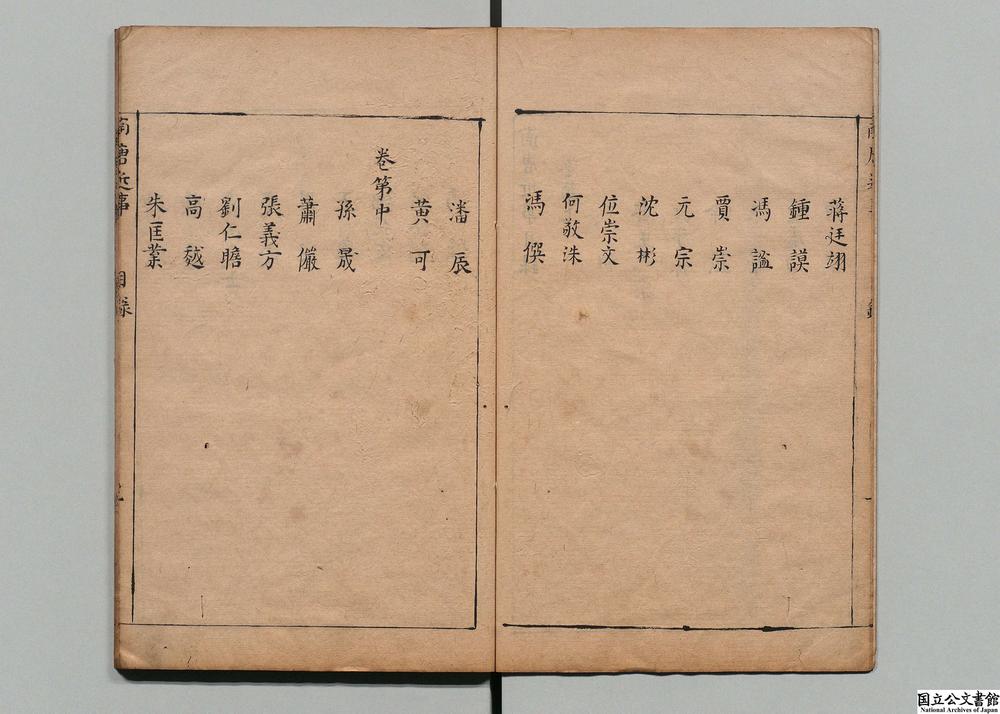 蔣廷翊
鍾謨
馮謐
賈崇
元宗
沈彬
位崇文
何敬洙
馮僎
潘扆
黃可
卷第中
孫晟
蕭儼
張義方
劉仁贍
高越
朱匡業
南唐近事 目録
国立公文書館
National Archives of Japan